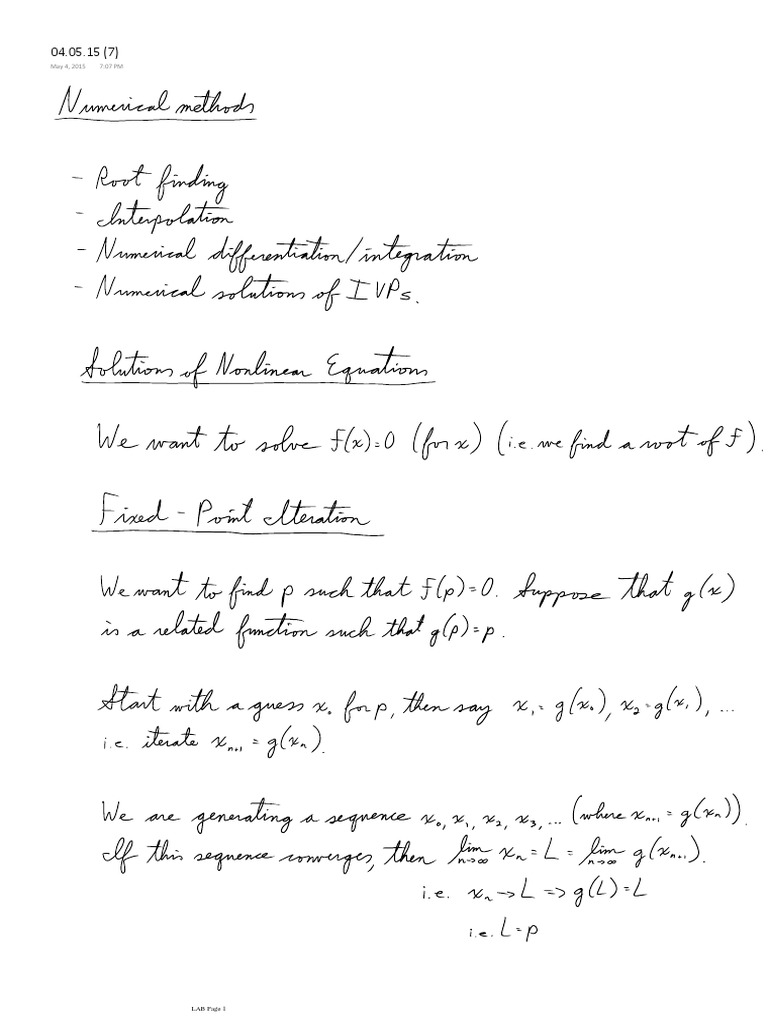 04.05.15 (7)
May 4, 2015 7:07 PM
Numerical methods
- Root finding
- Interpolation
- Numerical differentiation/integration
- Numerical solutions of IVPs.
Solutions of Nonlinear Equations
We want to solve f(x)=0 (for x) (i.e. we find a root of f).
Fixed-Point Iteration
We want to find p such that f(p)=0. Suppose that g(x)
is a related function such that g(p)=p.
Start with a guess x₀ for p, then say x₁=g(x₀), x₂=g(x₁), ...
i.e. iterate xₙ₊₁=g(xₙ).
We are generating a sequence x₀, x₁, x₂, x₃, ... (where xₙ₊₁=g(xₙ)).
If this sequence converges, then lim n→∞ xₙ = L = lim n→∞ g(xₙ₊₁).
i.e. xₙ→L => g(L)=L
i.e. L=p
LAB Page 1